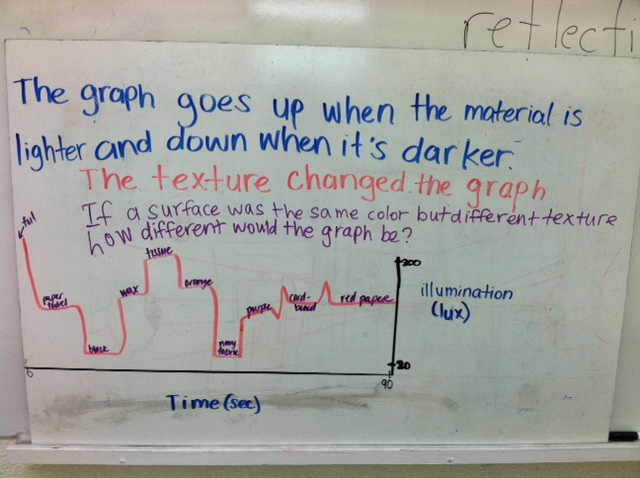 reflecti
The graph goes up when the material is
lighter and down when it's darker.
The texture changed the graph
If a surface was the same color but different texture
how different would the graph be?
foil
paper towel
black
wax
tissue
orange
navy fabric
purple
card-board
red paper
200
20
illumination
(lux)
0
90
Time (sec)